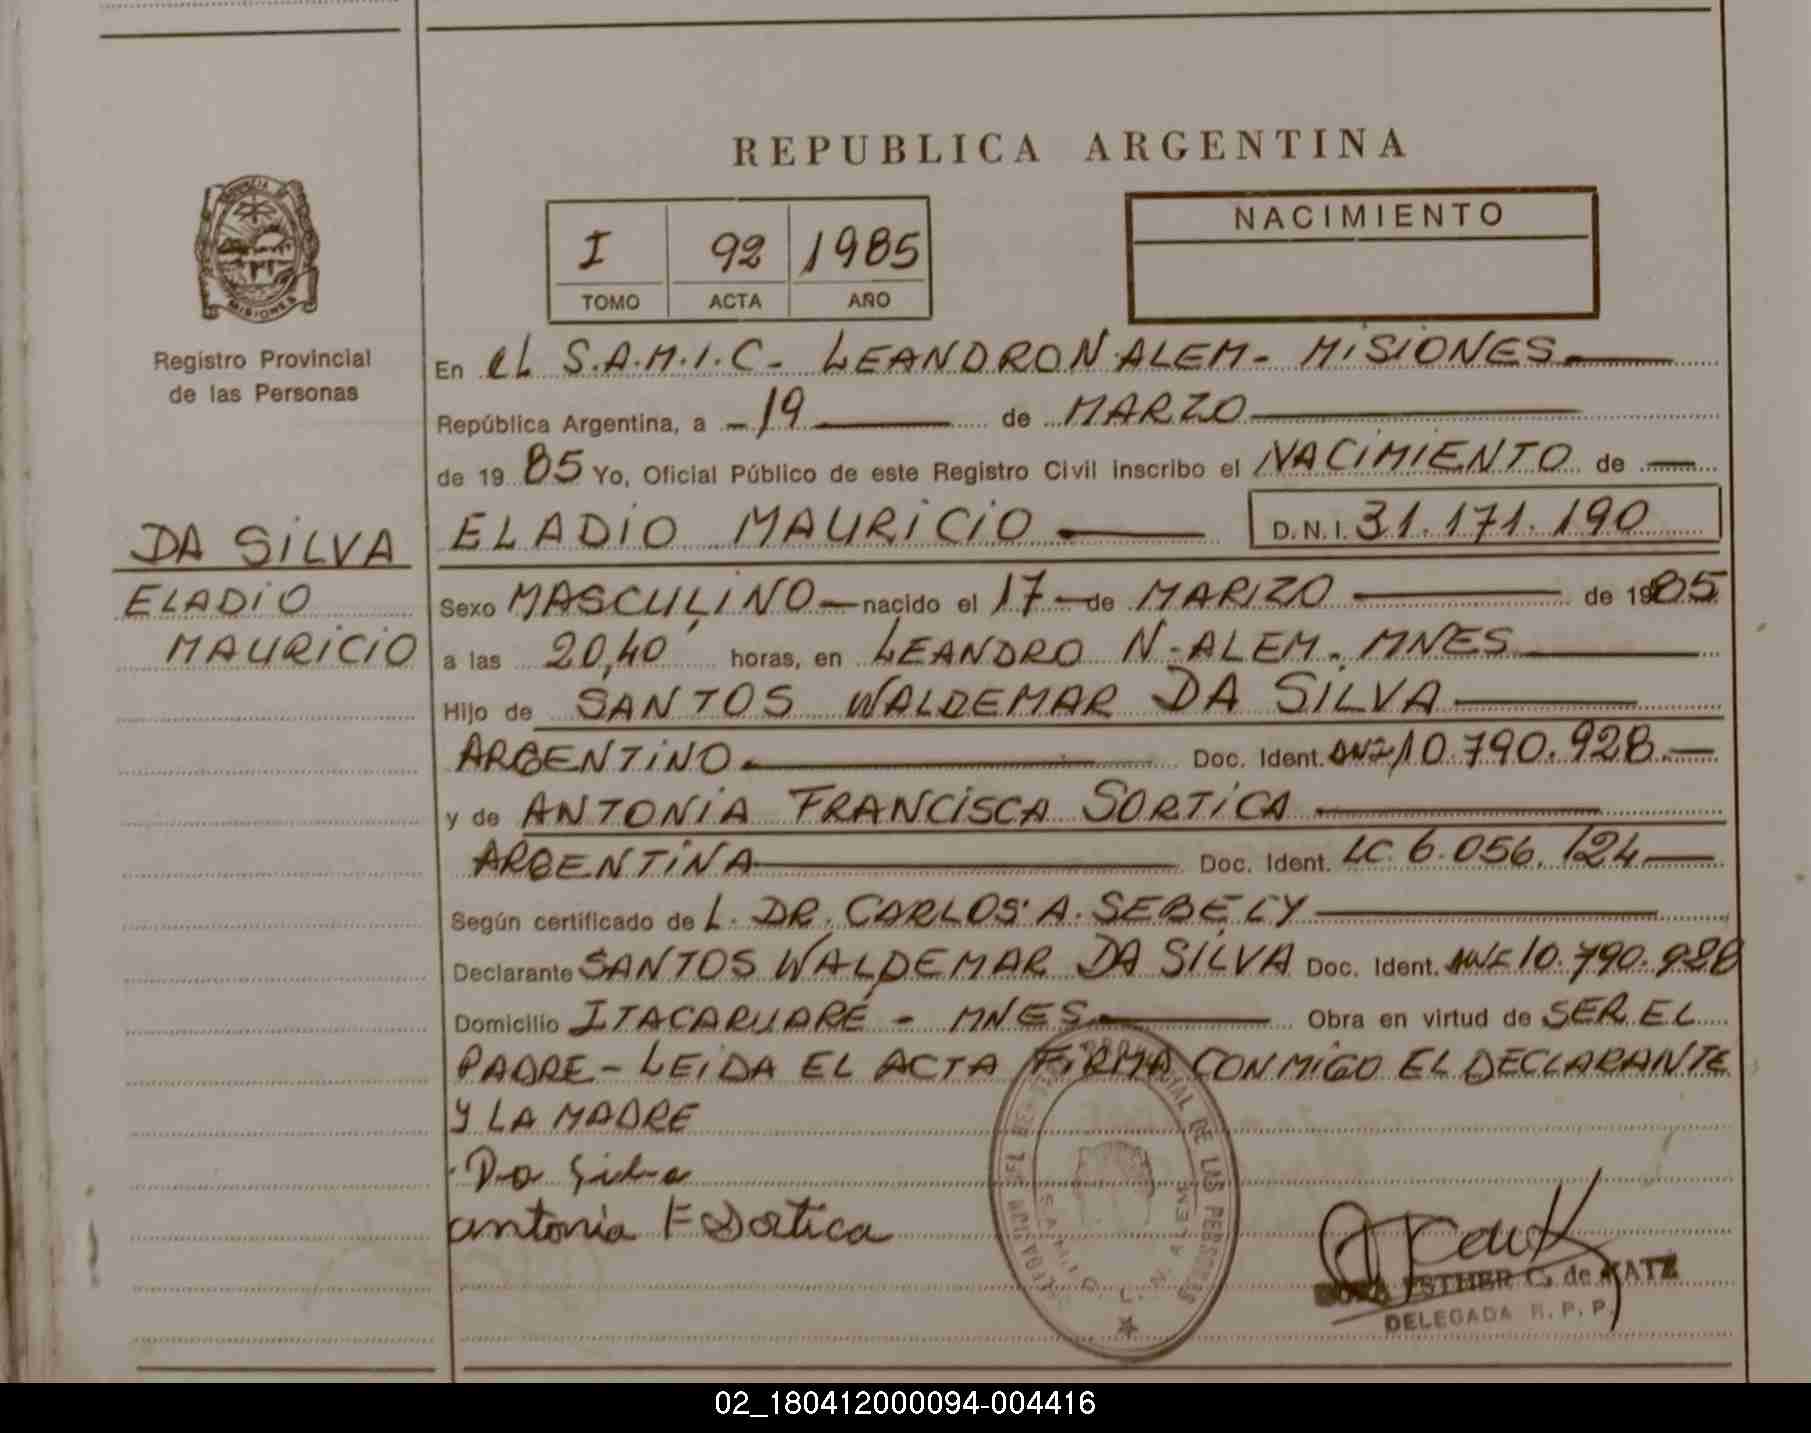 REPUBLICA ARGENTINA
I 92 1985
TOMO ACTA AÑO
NACIMIENTO
MISIONES
Registro Provincial
de las Personas
En el S.A.M.I.C - LEANDRO N. ALEM - MISIONES
República Argentina, a - 19 de MARZO
de 19 85 Yo, Oficial Público de este Registro Civil inscribo el NACIMIENTO de
DA SILVA
ELADIO
MAURICIO
ELADIO MAURICIO D.N.I. 31.171.190
Sexo MASCULINO nacido el 17 de MARZO de 1985
a las 20,40 horas, en LEANDRO N. ALEM. MNES
Hijo de SANTOS WALDEMAR DA SILVA
ARGENTINO Doc. Ident. 10.790.928
y de ANTONIA FRANCISCA SORTICA
ARGENTINA Doc. Ident. LC. 6.056.124
Según certificado de L. DR. CARLOS A. SEBELY
Declarante SANTOS WALDEMAR DA SILVA Doc. Ident. 10.790.928
Domicilio ITACARUARÉ - MNES Obra en virtud de SER EL
PADRE - LEIDA EL ACTA FIRMA CONMIGO EL DECLARANTE
Y LA MADRE
Da Silva
antonia F Sortica
ESTHER C. de KATZ
DELEGADA R.P.P.
02_180412000094-004416